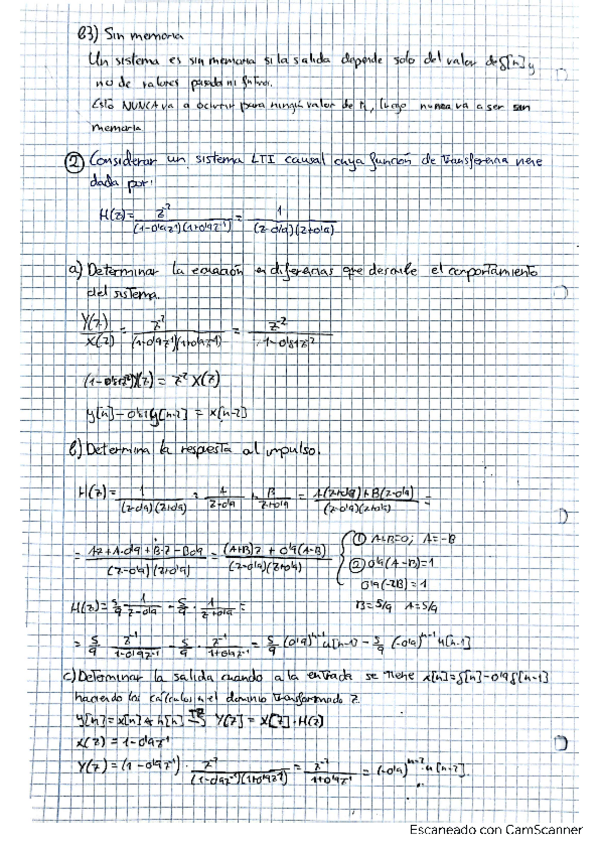 b3) Sin memoria
Un sistema es sin memoria si la salida depende solo del valor de δ[n] y
no de valores pasados ni futuros.
Esto NUNCA va a ocurrir para ningún valor de n, luego nunca va a ser sin
memoria.
② Considerar un sistema LTI causal cuya función de transferencia viene
dada por:
H(z) = z⁻² / (1-0'9z⁻¹)(1+0'9z⁻¹) = 1 / (z-0'9)(z+0'9)
a) Determinar la ecuación en diferencias que describe el comportamiento
del sistema.
Y(z)/X(z) = z⁻² / (1-0'9z⁻¹)(1+0'9z⁻¹) = z⁻² / 1-0'81z⁻²
(1-0'81z⁻²)Y(z) = z⁻² X(z)
y[n]-0'81y[n-2] = x[n-2]
b) Determina la respuesta al impulso.
H(z) = 1 / (z-0'9)(z+0'9) = A / z-0'9 + B / z+0'9 = A(z+0'9)+B(z-0'9) / (z-0'9)(z+0'9) =
= Az+A·0'9+B·z-B0'9 / (z-0'9)(z+0'9) = (A+B)z + 0'9(A-B) / (z-0'9)(z+0'9)
① A+B=0; A=-B
② 0'9(A-B)=1
0'9(-2B)=1
B=5/9 A=5/9
H(z) = 5/9 · 1 / z-0'9 - 5/9 · 1 / z+0'9 =
= 5/9 z⁻¹ / 1-0'9z⁻¹ - 5/9 · z⁻¹ / 1+0'9z⁻¹ = 5/9 (0'9)ⁿ⁻¹ u[n-1] - 5/9 (-0'9)ⁿ⁻¹ u[n-1]
c) Determinar la salida cuando a la entrada se tiene x[n]=δ[n]-0'9δ[n-1]
haciendo los cálculos en el dominio transformado z.
y[n] = x[n] * h[n] TZ→ Y[z] = X[z]·H(z)
X(z) = 1-0'9z⁻¹
Y(z) = (1-0'9z⁻¹) · z⁻² / (1-0'9z⁻¹)(1+0'9z⁻¹) = z⁻² / 1+0'9z⁻¹ = (-0'9)ⁿ⁻² u[n-2].
Escaneado con CamScanner